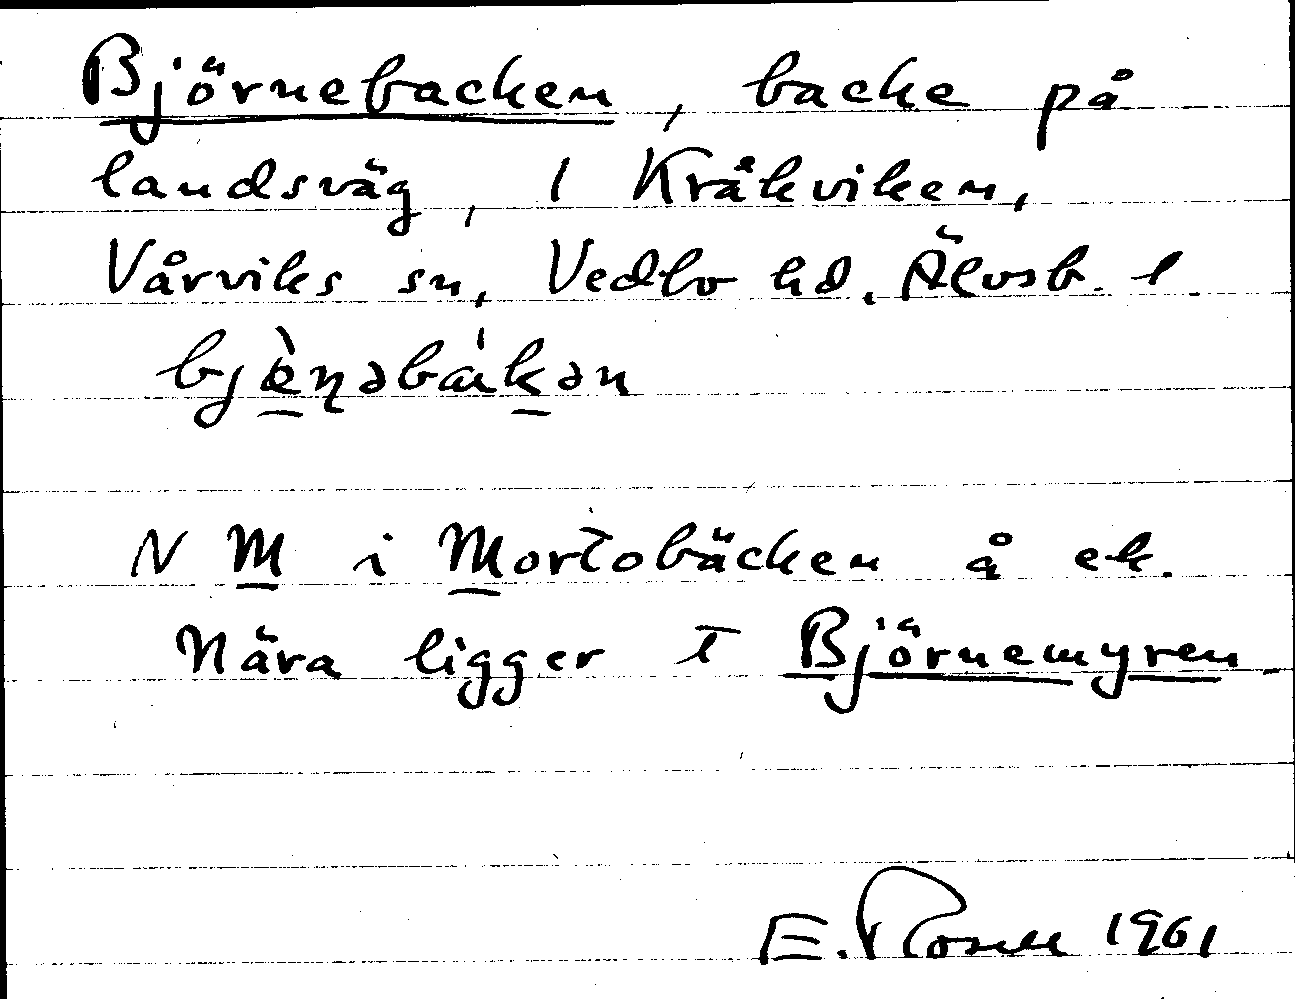 Björnebacken, backe på
landsväg, i Kråkviken,
Vårviks sn, Vedbo hd. Älvsb. l.
bjæ̀ɳəbákən
N M i Mortobäcken å ek.
Nära ligger t Björnemyren.
E. Rosell 1961